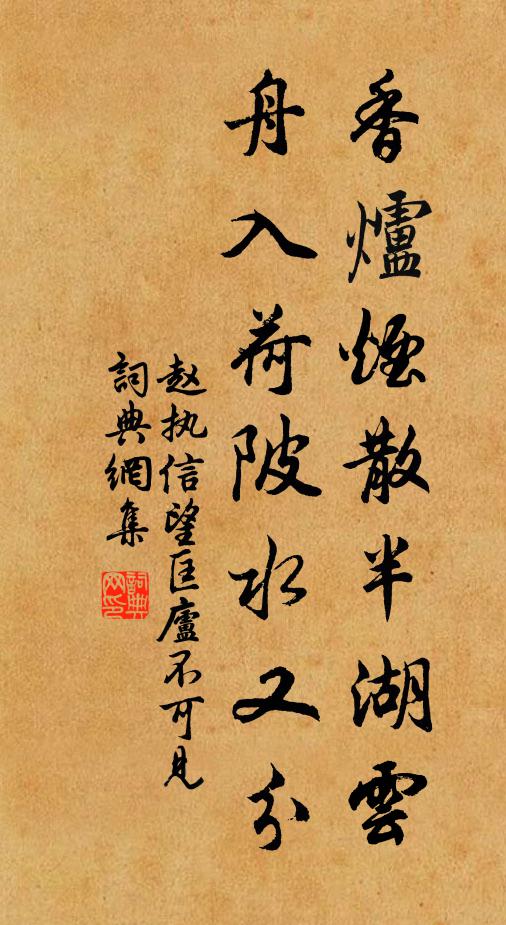 香爐煙散半湖雲
舟入荷陂水又分
赵执信望匡廬不可見
詞典網集
詞典网印